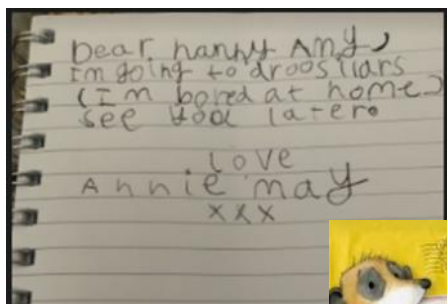 Dear nanny Amy,
I'm going to droosilars
(I'm bored at home)
see you later.
love
Annie may
xxx